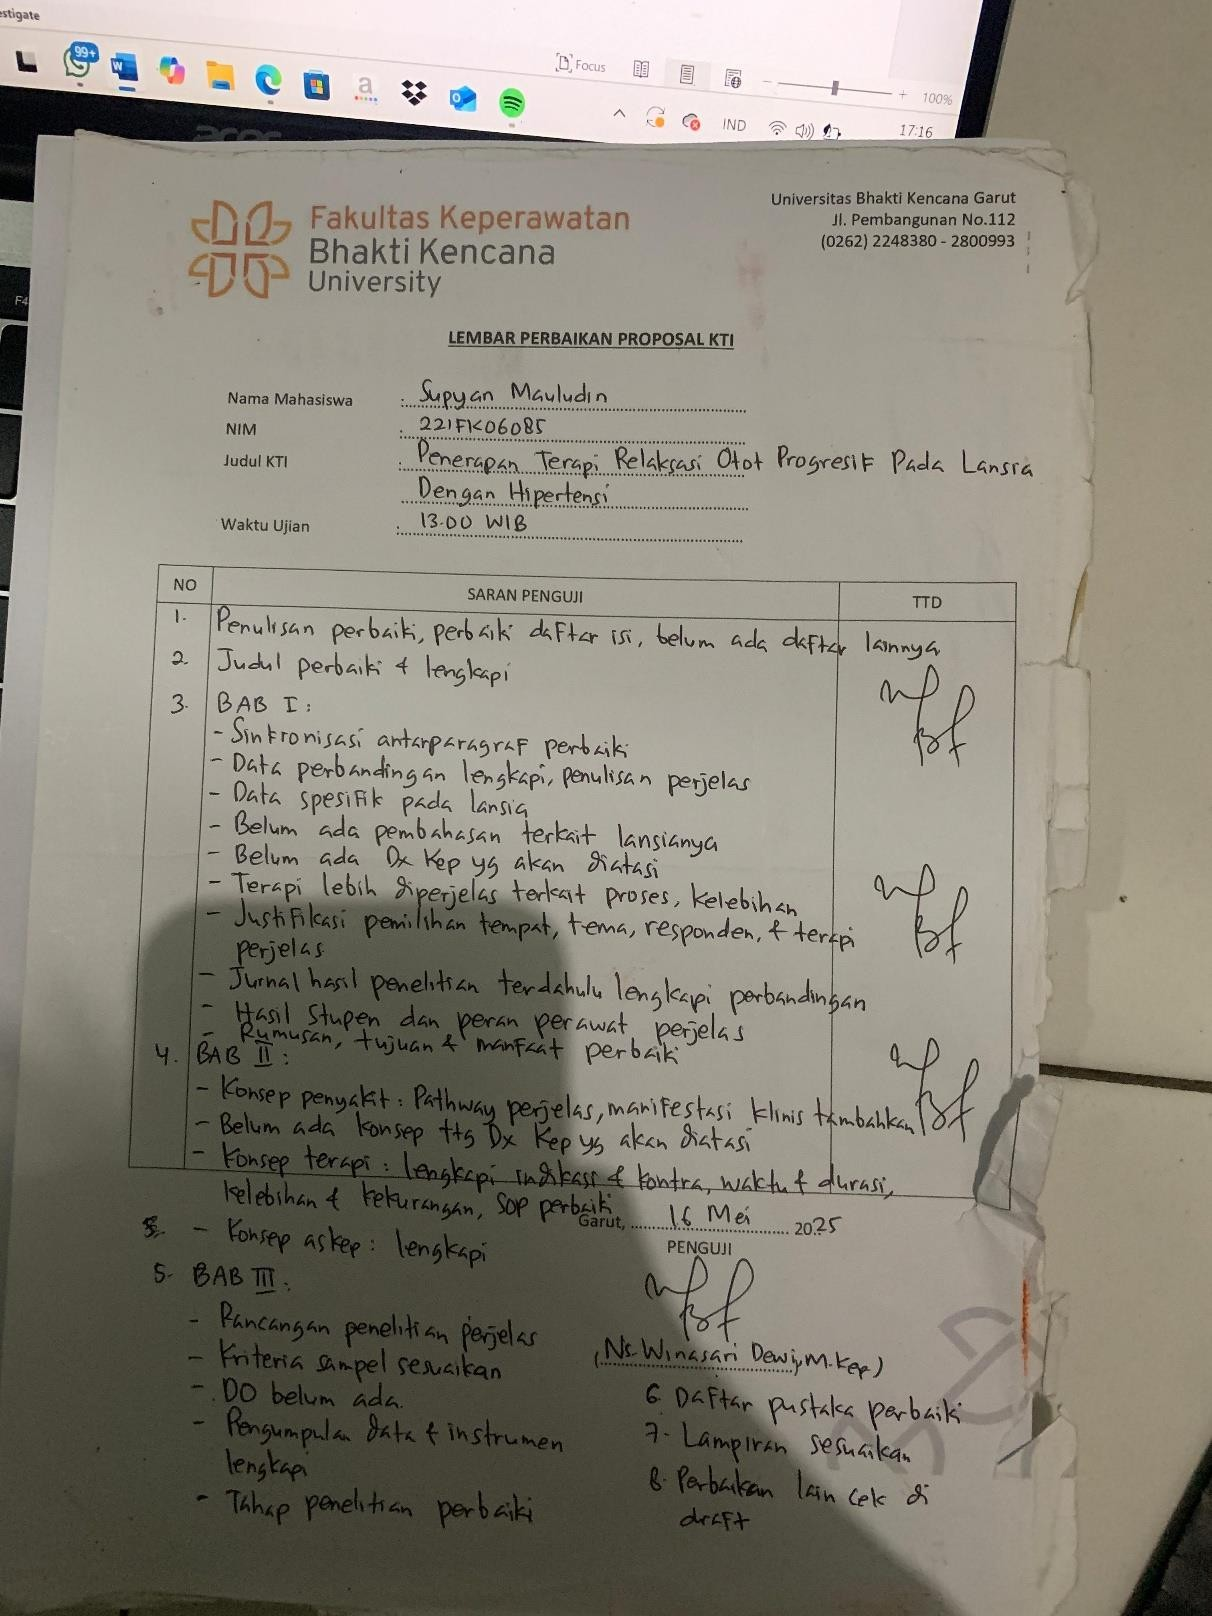 estigate
99+
Focus
100%
IND
17:16
acer
F4
Fakultas Keperawatan
Bhakti Kencana
University
Universitas Bhakti Kencana Garut
Jl. Pembangunan No.112
(0262) 2248380 - 2800993
LEMBAR PERBAIKAN PROPOSAL KTI
Nama Mahasiswa : Supyan Mauludin
NIM : 221FK06085
Judul KTI : Penerapan Terapi Relaksasi Otot Progresif Pada Lansia
Dengan Hipertensi
Waktu Ujian : 13.00 WIB
NO SARAN PENGUJI TTD
1. Penulisan perbaiki, perbaiki daftar isi, belum ada daftar lainnya
2. Judul perbaiki & lengkapi
3. BAB I :
- Sinkronisasi antarparagraf perbaiki
- Data perbandingan lengkapi, penulisan perjelas
- Data spesifik pada lansia
- Belum ada pembahasan terkait lansianya
- Belum ada Dx Kep yg akan diatasi
- Terapi lebih diperjelas terkait proses, kelebihan
- Justifikasi pemilihan tempat, tema, responden, & terapi
perjelas
- Jurnal hasil penelitian terdahulu lengkapi perbandingan
- Hasil Stupen dan peran perawat perjelas
- Rumusan, tujuan & manfaat perbaiki
4. BAB II :
- Konsep penyakit : Pathway perjelas, manifestasi klinis tambahkan
- Belum ada konsep ttg Dx Kep yg akan diatasi
- Konsep terapi : lengkapi indikasi & kontra, waktu & durasi,
kelebihan & kekurangan, SOP perbaiki
- Konsep askep : lengkapi
Garut, 16 Mei 2025
PENGUJI
(Ns. Winasari Dewi, M.Kep)
5. BAB III :
- Rancangan penelitian perjelas
- Kriteria sampel sesuaikan
- DO belum ada.
- Pengumpulan data & instrumen
lengkapi
- Tahap penelitian perbaiki
6. Daftar pustaka perbaiki
7. Lampiran sesuaikan
8. Perbaikan lain cek di
draft